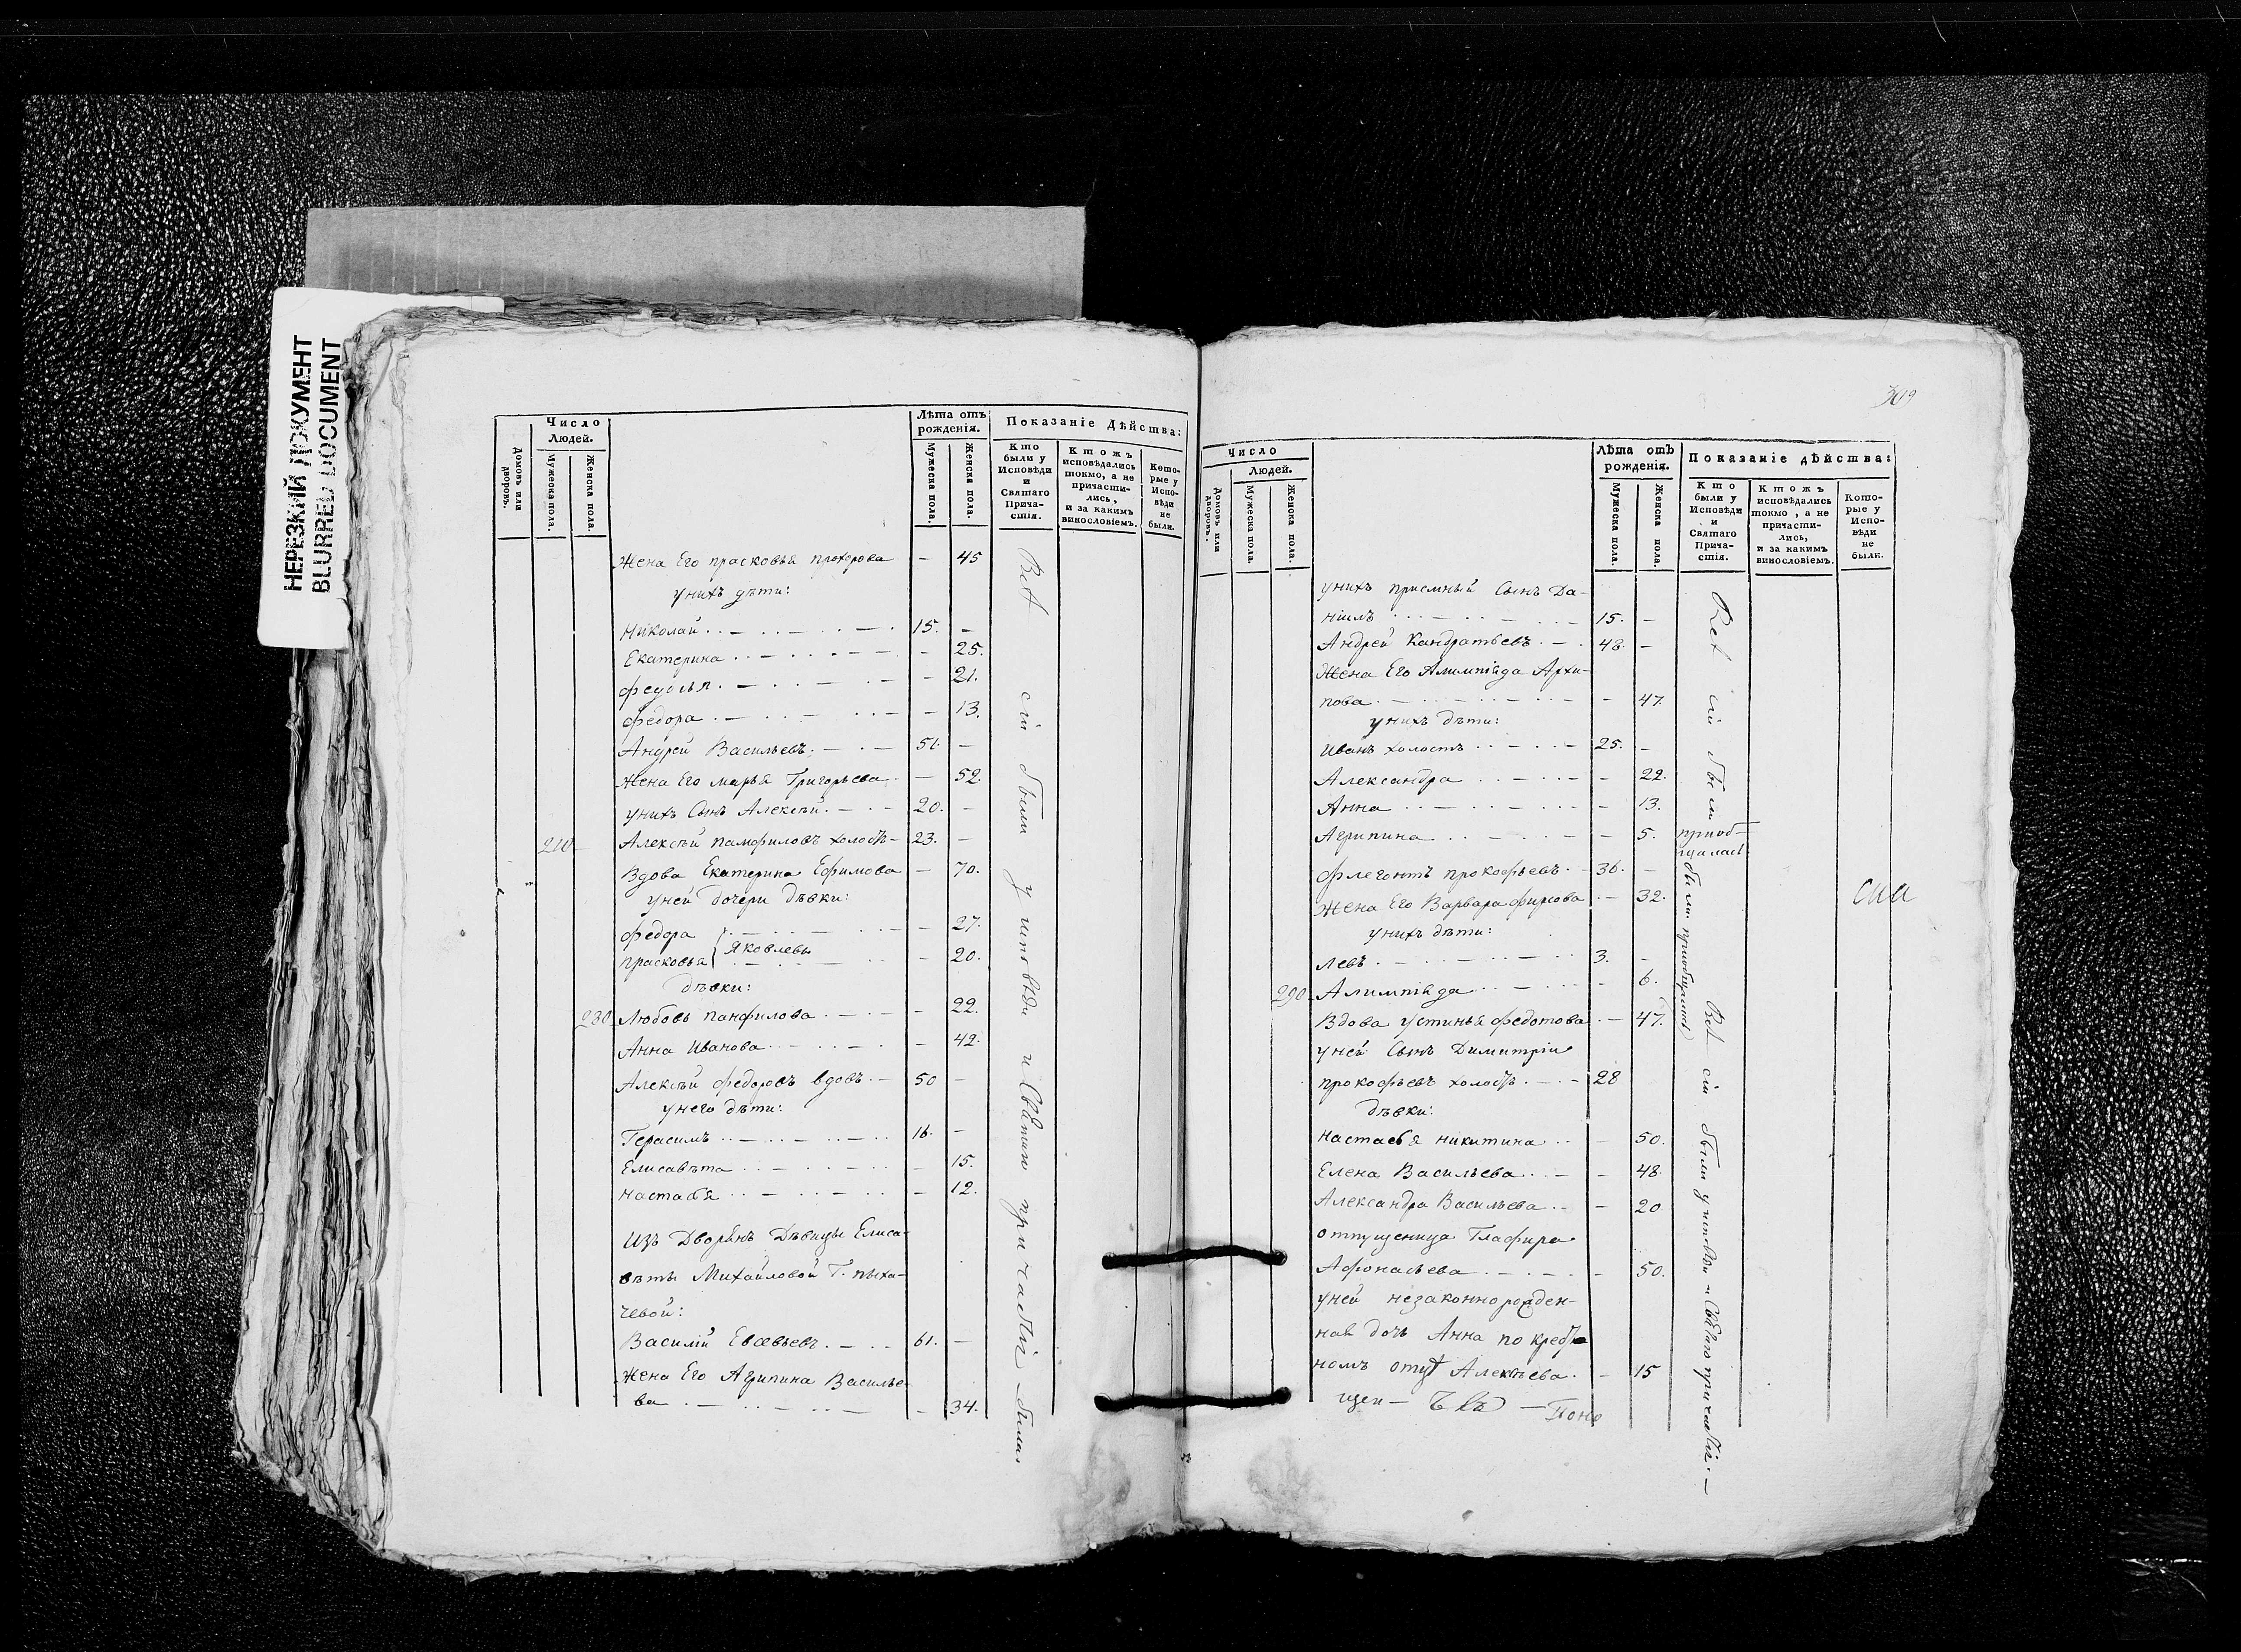 НЕРЕЗКИЙ ДОКУМЕНТ
BLURRED DOCUMENT
Число
Людей.
Домовъ или дворовъ.
Мужеска пола.
Женска пола.
Лѣта отъ рожденія.
Мужеска пола.
Женска пола.
Показаніе Дѣйства:
Кто были у Исповѣди и Святаго Прича-стія.
Ктожъ исповѣдались токмо, а не причасти-лись, и за какимъ винословіемъ.
Кото-рые у Испо-вѣди не были.
Жена Его прасковья прохорова – 45
унихъ дѣти:
Николай 15. –
Екатерина – 25.
Федосья – 21.
федора – 13.
Андрей Васильевъ 51. –
Жена Его марья Григорьева – 52.
унихъ Сынъ Алексѣй 20. –
210 Алексѣй памфиловъ холостъ 23. –
Вдова Екатерина Ефимова – 70.
уней дочери дѣвки:
федора – 27.
Яковлевы
прасковья – 20.
дѣвки:
230 Любовь панфилова – 22.
Анна Иванова – 42.
Алексѣй федоровъ вдовъ 50 –
унего дѣти:
Герасимъ 16. –
Елисавѣта – 15.
настасья – 12.
Изъ Дворянъ Дѣвицы Елиса-
вѣты Михайловой Г. пыха-
чевой:
Василій Евсевьевъ 61. –
жена Его Агрипина Василье-
ва – 34.
Всѣ сіи были у исповѣди и Святаго причастія были
309
Число
Людей.
Домовъ или дворовъ.
Мужеска пола.
Женска пола.
Лѣта отъ рожденія.
Мужеска пола.
Женска пола.
Показаніе дѣйства:
Кто были у Исповѣди и Святаго Прича-стія.
Ктожъ исповѣдались токмо, а не причасти-лись, и за какимъ винословіемъ.
Кото-рые у Испо-вѣди не были.
унихъ приемный Сынъ Да-
ніилъ 15. –
Андрей Кандратьевъ 48. –
Жена Его Алимпіяда Архи-
пова – 47.
унихъ дѣти:
Иванъ холостъ 25. –
Александра – 22.
Анна – 13.
Агрипина – 5.
флегонтъ прокофьевъ 36. –
Жена Его Варвара фирсова – 32.
унихъ дѣти:
левъ 3. –
290. Алимпіяда – 6.
Вдова устинья федотова – 47.
уней Сынъ Димитріи
прокофьевъ холостъ 28
дѣвки:
настасья никитина – 50.
Елена Васильева – 48.
Александра Васильева – 20
отпущеница Глафира
Афонасьева – 50.
уней незаконнорожден-
ная дочь Анна по крест-
номъ отцѣ Алексѣева – 15
Всѣ сіи были
приоб-
щилась
были
Всѣ сіи были у исповѣди и Святаго причастія. –